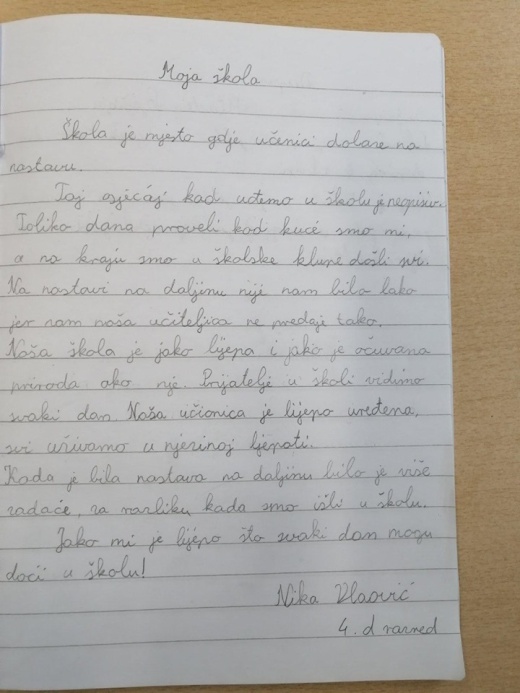 Moja škola
Škola je mjesto gdje učenici dolaze na
nastavu.
Taj osjećaj kad uđemo u školu je neopisiv.
Toliko dana proveli kod kuće smo mi,
a na kraju smo u školske klupe došli svi.
Na nastavi na daljinu nije nam bilo lako
jer nam naša učiteljica ne predaje tako.
Naša škola je jako lijepa i jako je očuvana
priroda oko nje. Prijatelje u školi vidimo
svaki dan. Naša učionica je lijepo uređena,
svi uživamo u njezinoj ljepoti.
Kada je bila nastava na daljinu bilo je više
zadaće, za razliku kada smo išli u školu.
Jako mi je lijepo što svaki dan mogu
doći u školu!
Nika Vlaović
4. d razred